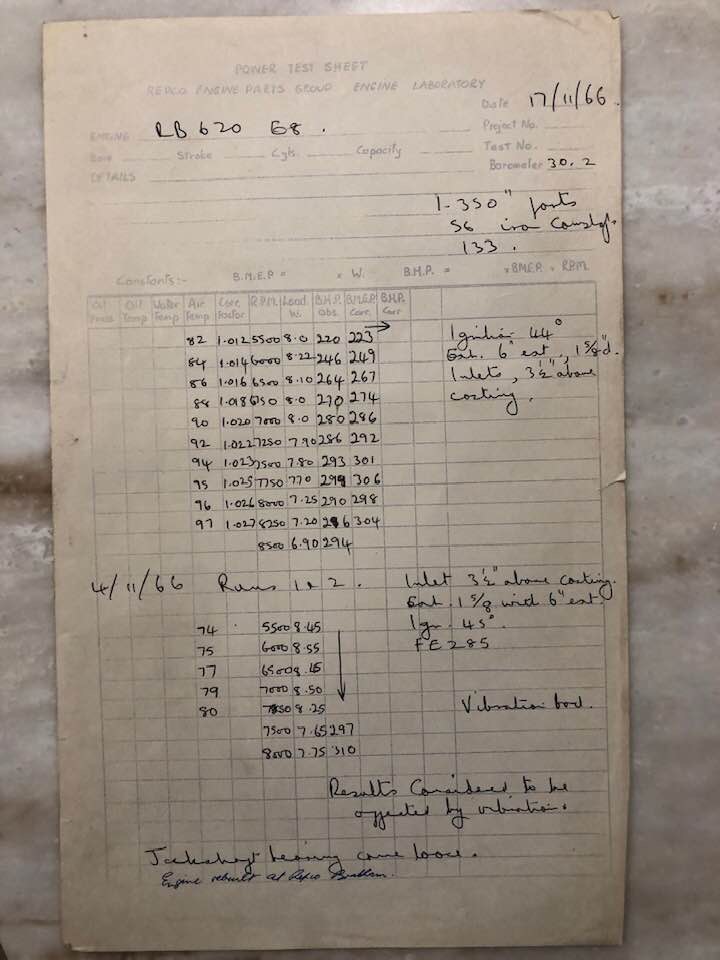 POWER TEST SHEET
REPCO ENGINE PARTS GROUP ENGINE LABORATORY
Date 17/11/66.
ENGINE RB 620 E8. Project No.
Bore Stroke Cyls. Capacity Test No.
DETAILS Barometer 30.2
1.350" ports
56 iron Camshafts
133.
Constants:- B.M.E.P = x W. B.H.P. = x B.M.E.P. x R.P.M.
Oil Press Oil Temp Water Temp Air Temp Corr. Factor R.P.M. Load W. B.H.P. Obs. B.M.E.P. Corr. B.H.P. Corr
82 1.012 5500 8.0 220 223 Ignition 44°
84 1.014 6000 8.22 246 249 Exh. 6" ext, 1 5/8 d.
86 1.016 6500 8.10 264 267 Inlets, 3½" above
88 1.018 6750 8.0 270 274 casting.
90 1.020 7000 8.0 280 286
92 1.022 7250 7.90 286 292
94 1.023 7500 7.80 293 301
95 1.025 7750 770 298 306
96 1.026 8000 7.25 290 298
97 1.027 8250 7.20 296 304
8500 6.90 294
4/11/66 Runs 1 & 2. Inlet 3½" above casting.
Exh. 1 5/8 with 6" ext.
74 5500 8.45 Ign. 45°.
75 6000 8.55 FE 285
77 6500 8.15
79 7000 8.50
80 7250 8.25 Vibration bad.
7500 7.65 297
8000 7.75 310
Results Considered to be
affected by vibration.
Jackshaft bearing came loose.
Engine rebuilt at Repco Brabham.